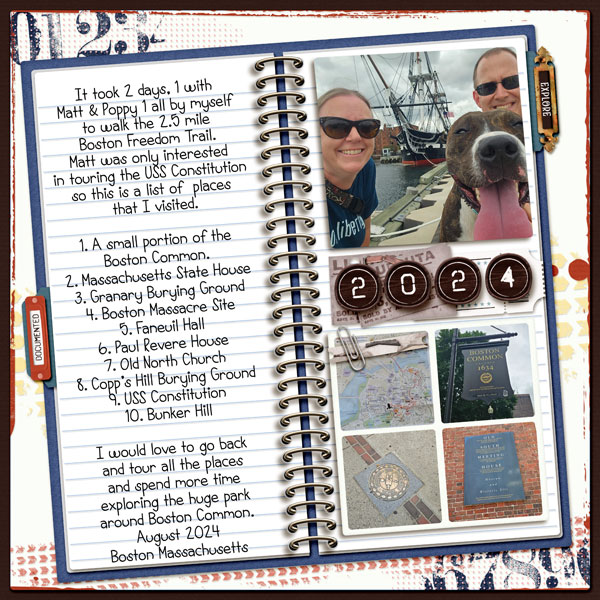 It took 2 days, 1 with
Matt & Poppy 1 all by myself
to walk the 2.5 mile
Boston Freedom Trail.
Matt was only interested
in touring the USS Constitution
so this is a list of places
that I visited.
1. A small portion of the
Boston Common.
2. Massachusetts State House
3. Granary Burying Ground
4. Boston Massacre Site
5. Faneuil Hall
6. Paul Revere House
7. Old North Church
8. Copp's Hill Burying Ground
9. USS Constitution
10. Bunker Hill
I would love to go back
and tour all the places
and spend more time
exploring the huge park
around Boston Common.
August 2024
Boston Massachusetts
DOCUMENTED
EXPLORE
2024
BOSTON
COMMON
1634
OLD
SOUTH
MEETING
HOUSE
0123